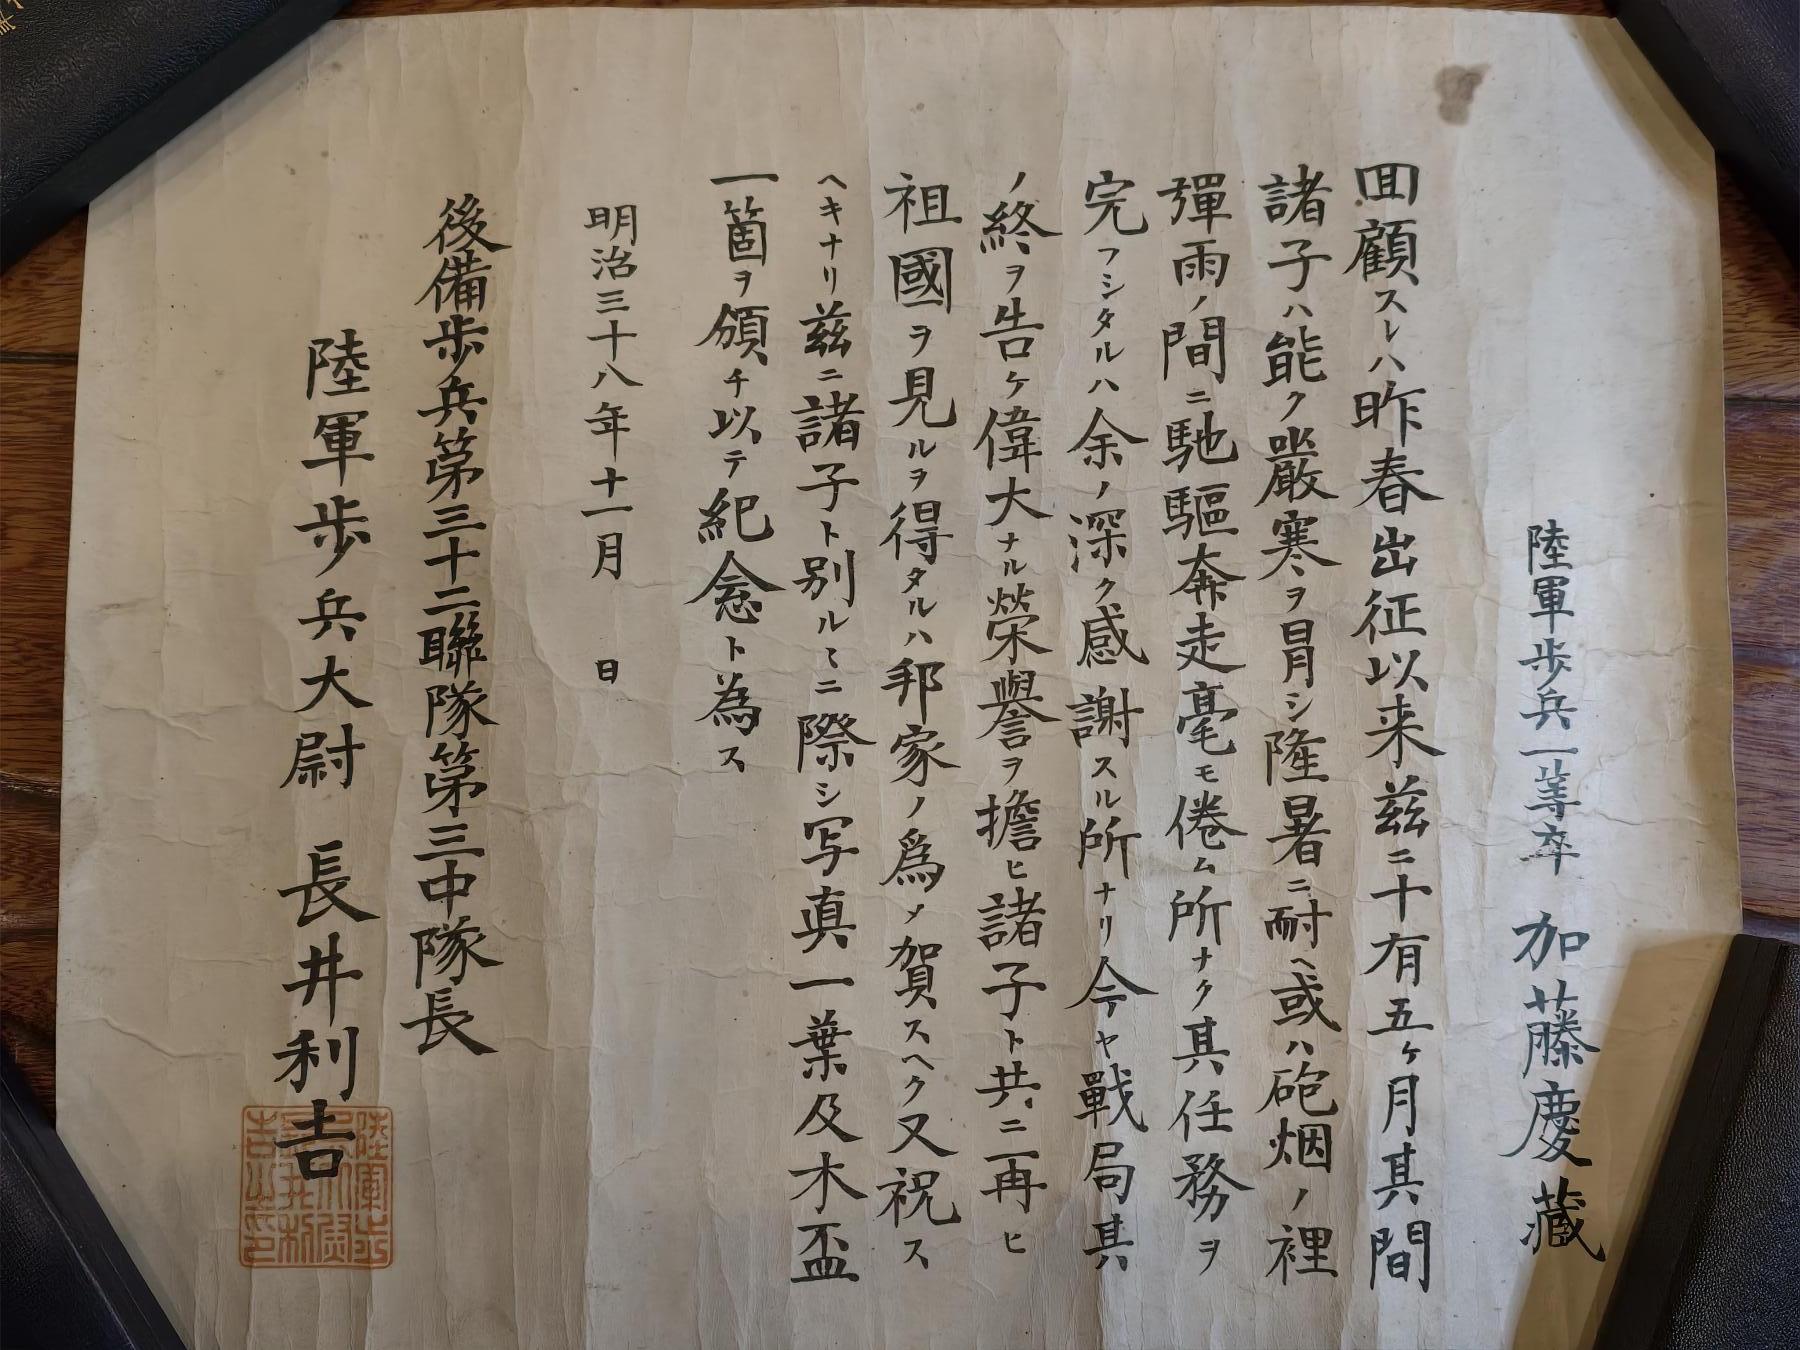 陸軍歩兵一等卒 加藤慶藏
回顧スレハ昨春出征以来茲ニ十有五ヶ月其間
諸子ハ能ク嚴寒ヲ冒シ隆暑ニ耐ヘ或ハ砲烟ノ裡
彈雨ノ間ニ馳驅奔走毫モ倦ム所ナク其任務ヲ
完フシタルハ余ノ深ク感謝スル所ナリ今ヤ戰局其
ノ終ヲ告ケ偉大ナル榮譽ヲ擔ヒ諸子ト共ニ再ヒ
祖國ヲ見ルヲ得タルハ邦家ノ爲メ賀スヘク又祝ス
ヘキナリ茲ニ諸子ト別ルヽニ際シ写真一葉及木盃
一箇ヲ頒チ以テ紀念ト為ス
明治三十八年十一月 日
後備歩兵第三十二聯隊第三中隊長
陸軍歩兵大尉 長井利吉
陸軍歩
兵大尉
長井利
吉之印